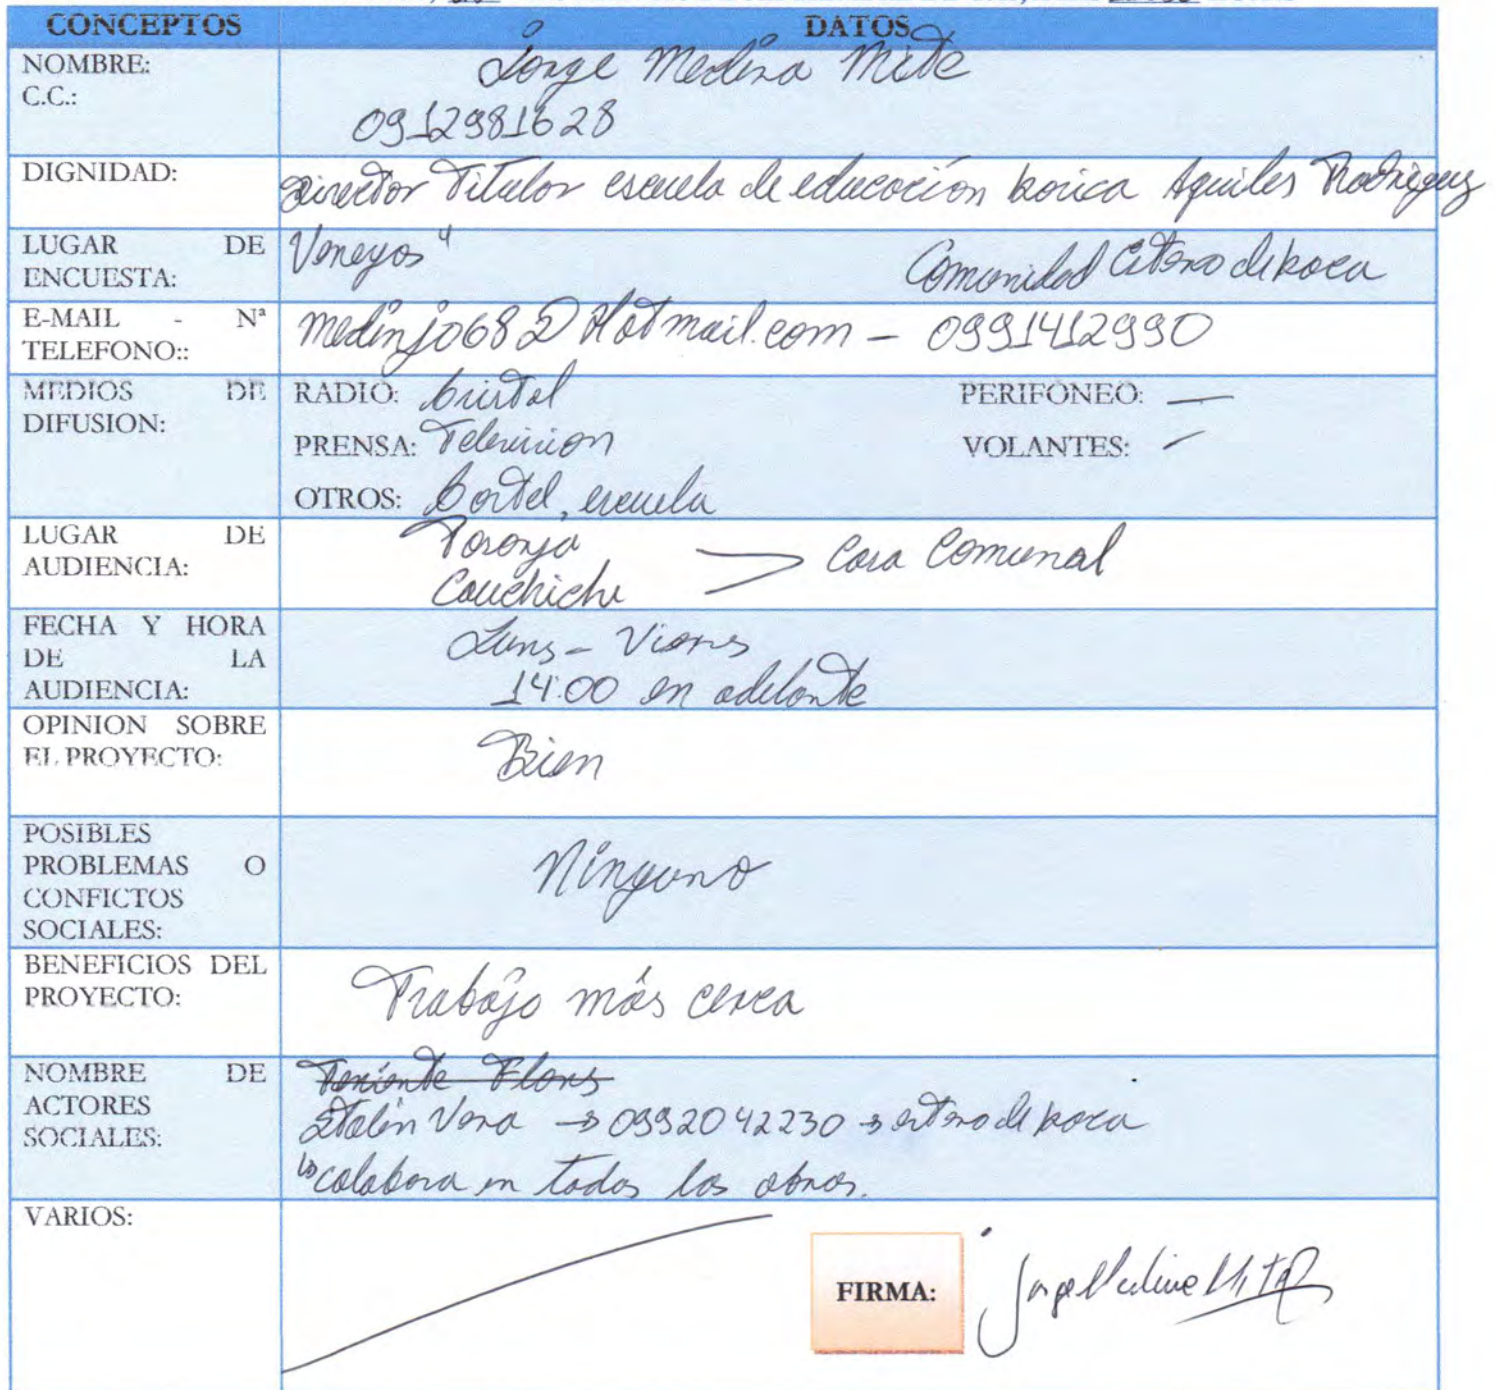 CONCEPTOS DATOS
NOMBRE: Jorge Medina Mite
C.C.: 0912981628
DIGNIDAD: Director Titular escuela de educación basica Aquiles Rodriguez
Venegas "
LUGAR DE ENCUESTA: Comunidad Estero de boca
E-MAIL - Nª TELEFONO:: medinjo682@Hotmail.com – 0991412990
MEDIOS DE DIFUSION: RADIO: Cristal PERIFONEO: —
PRENSA: Television VOLANTES: —
OTROS: Cartel, escuela
LUGAR DE AUDIENCIA: Toronja
Cauchiche > Casa Comunal
FECHA Y HORA DE LA AUDIENCIA: Luns – Viernes
14:00 en adelante
OPINION SOBRE EL PROYECTO: Bien
POSIBLES PROBLEMAS O CONFICTOS SOCIALES: Ninguno
BENEFICIOS DEL PROYECTO: Trabajo más cerca
NOMBRE DE ACTORES SOCIALES: Teniente Flores
Stalin Vera → 0992042230 → estero de boca
↳ colabora en todas las obras.
VARIOS:
FIRMA: Jorge Medina Mite